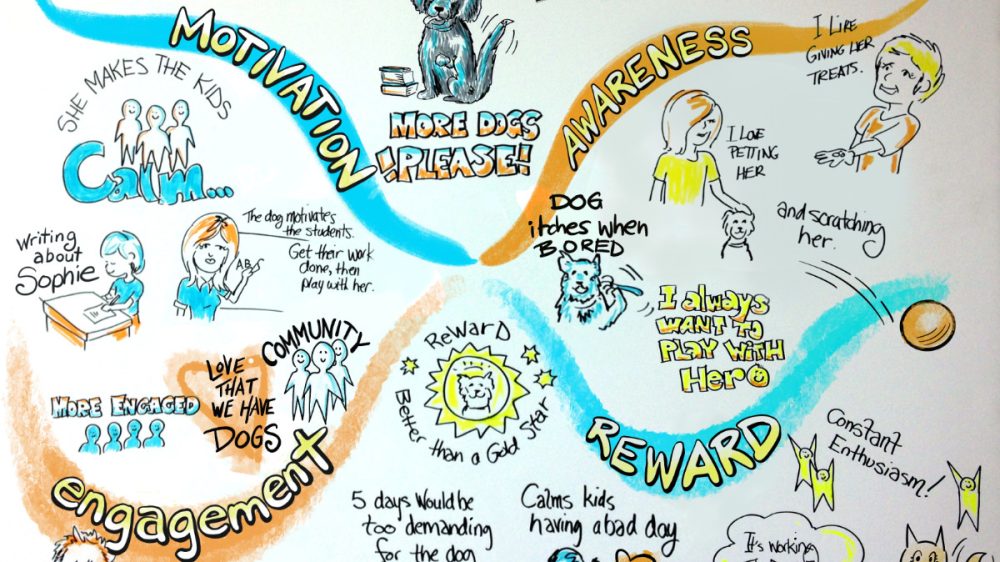 MOTIVATION
SHE MAKES THE KIDS
Calm...
Writing
about
Sophie
The dog motivates
the students.
Get their work
done, then
play with her.
AB
MORE DOGS
!PLEASE!
AWARENESS
I LIKE
GIVING HER
TREATS.
I LOVE
PETTING
HER
and scratching
her.
DOG
itches when
BORED
I always
WANT TO
PLAY WITH
Hero
MORE ENGAGED
LOVE
THAT
WE HAVE
DOGS
COMMUNITY
engagement
ReWarD
Better than a Gold Star
REWARD
Constant
Enthusiasm!
5 days would be
too demanding
for the dog
Calms kids
having a bad day
It's working